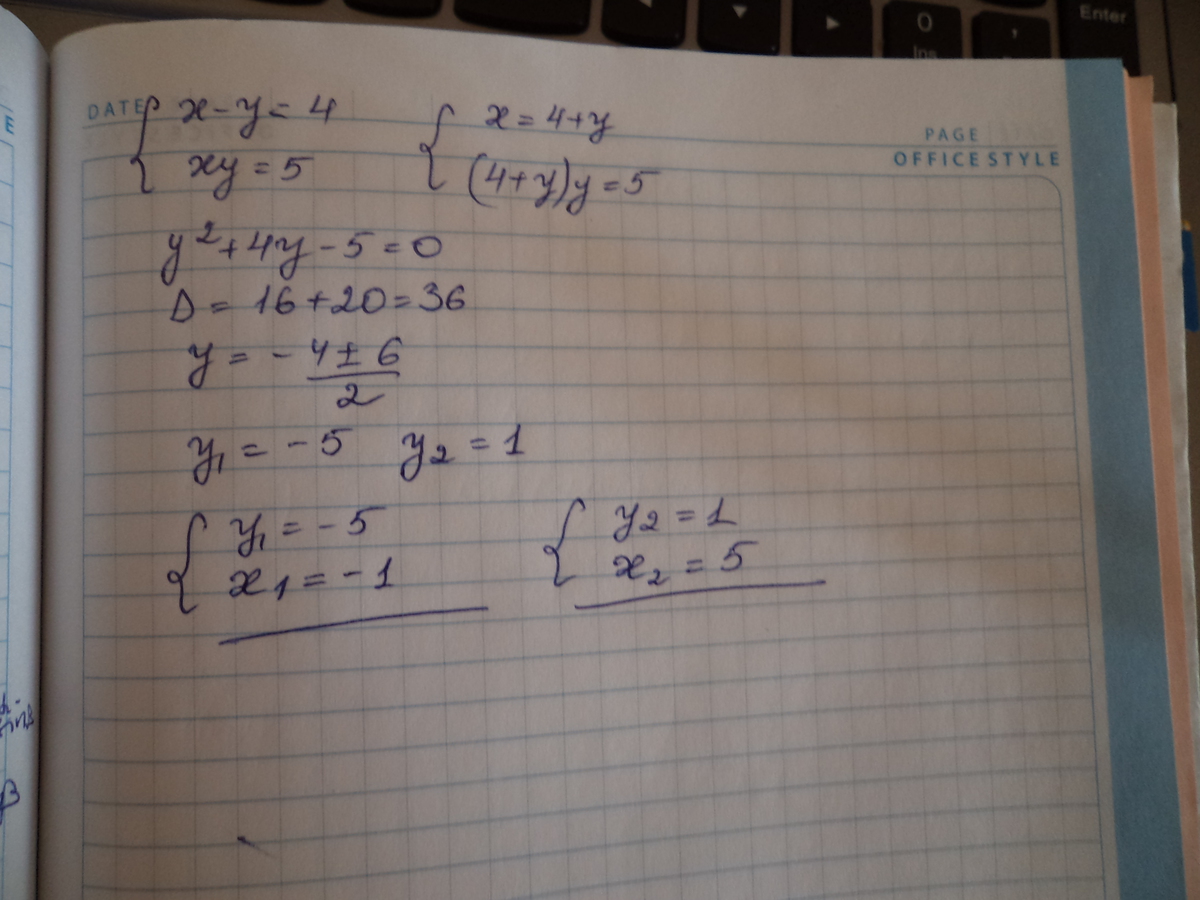 0
Ins
Enter
DATE
PAGE
OFFICE STYLE
E
{ x - y = 4
xy = 5
{ x = 4 + y
(4 + y)y = 5
y² + 4y - 5 = 0
D = 16 + 20 = 36
y = - 4 ± 6 / 2
y₁ = - 5 y₂ = 1
{ y₁ = - 5
x₁ = - 1
{ y₂ = 1
x₂ = 5